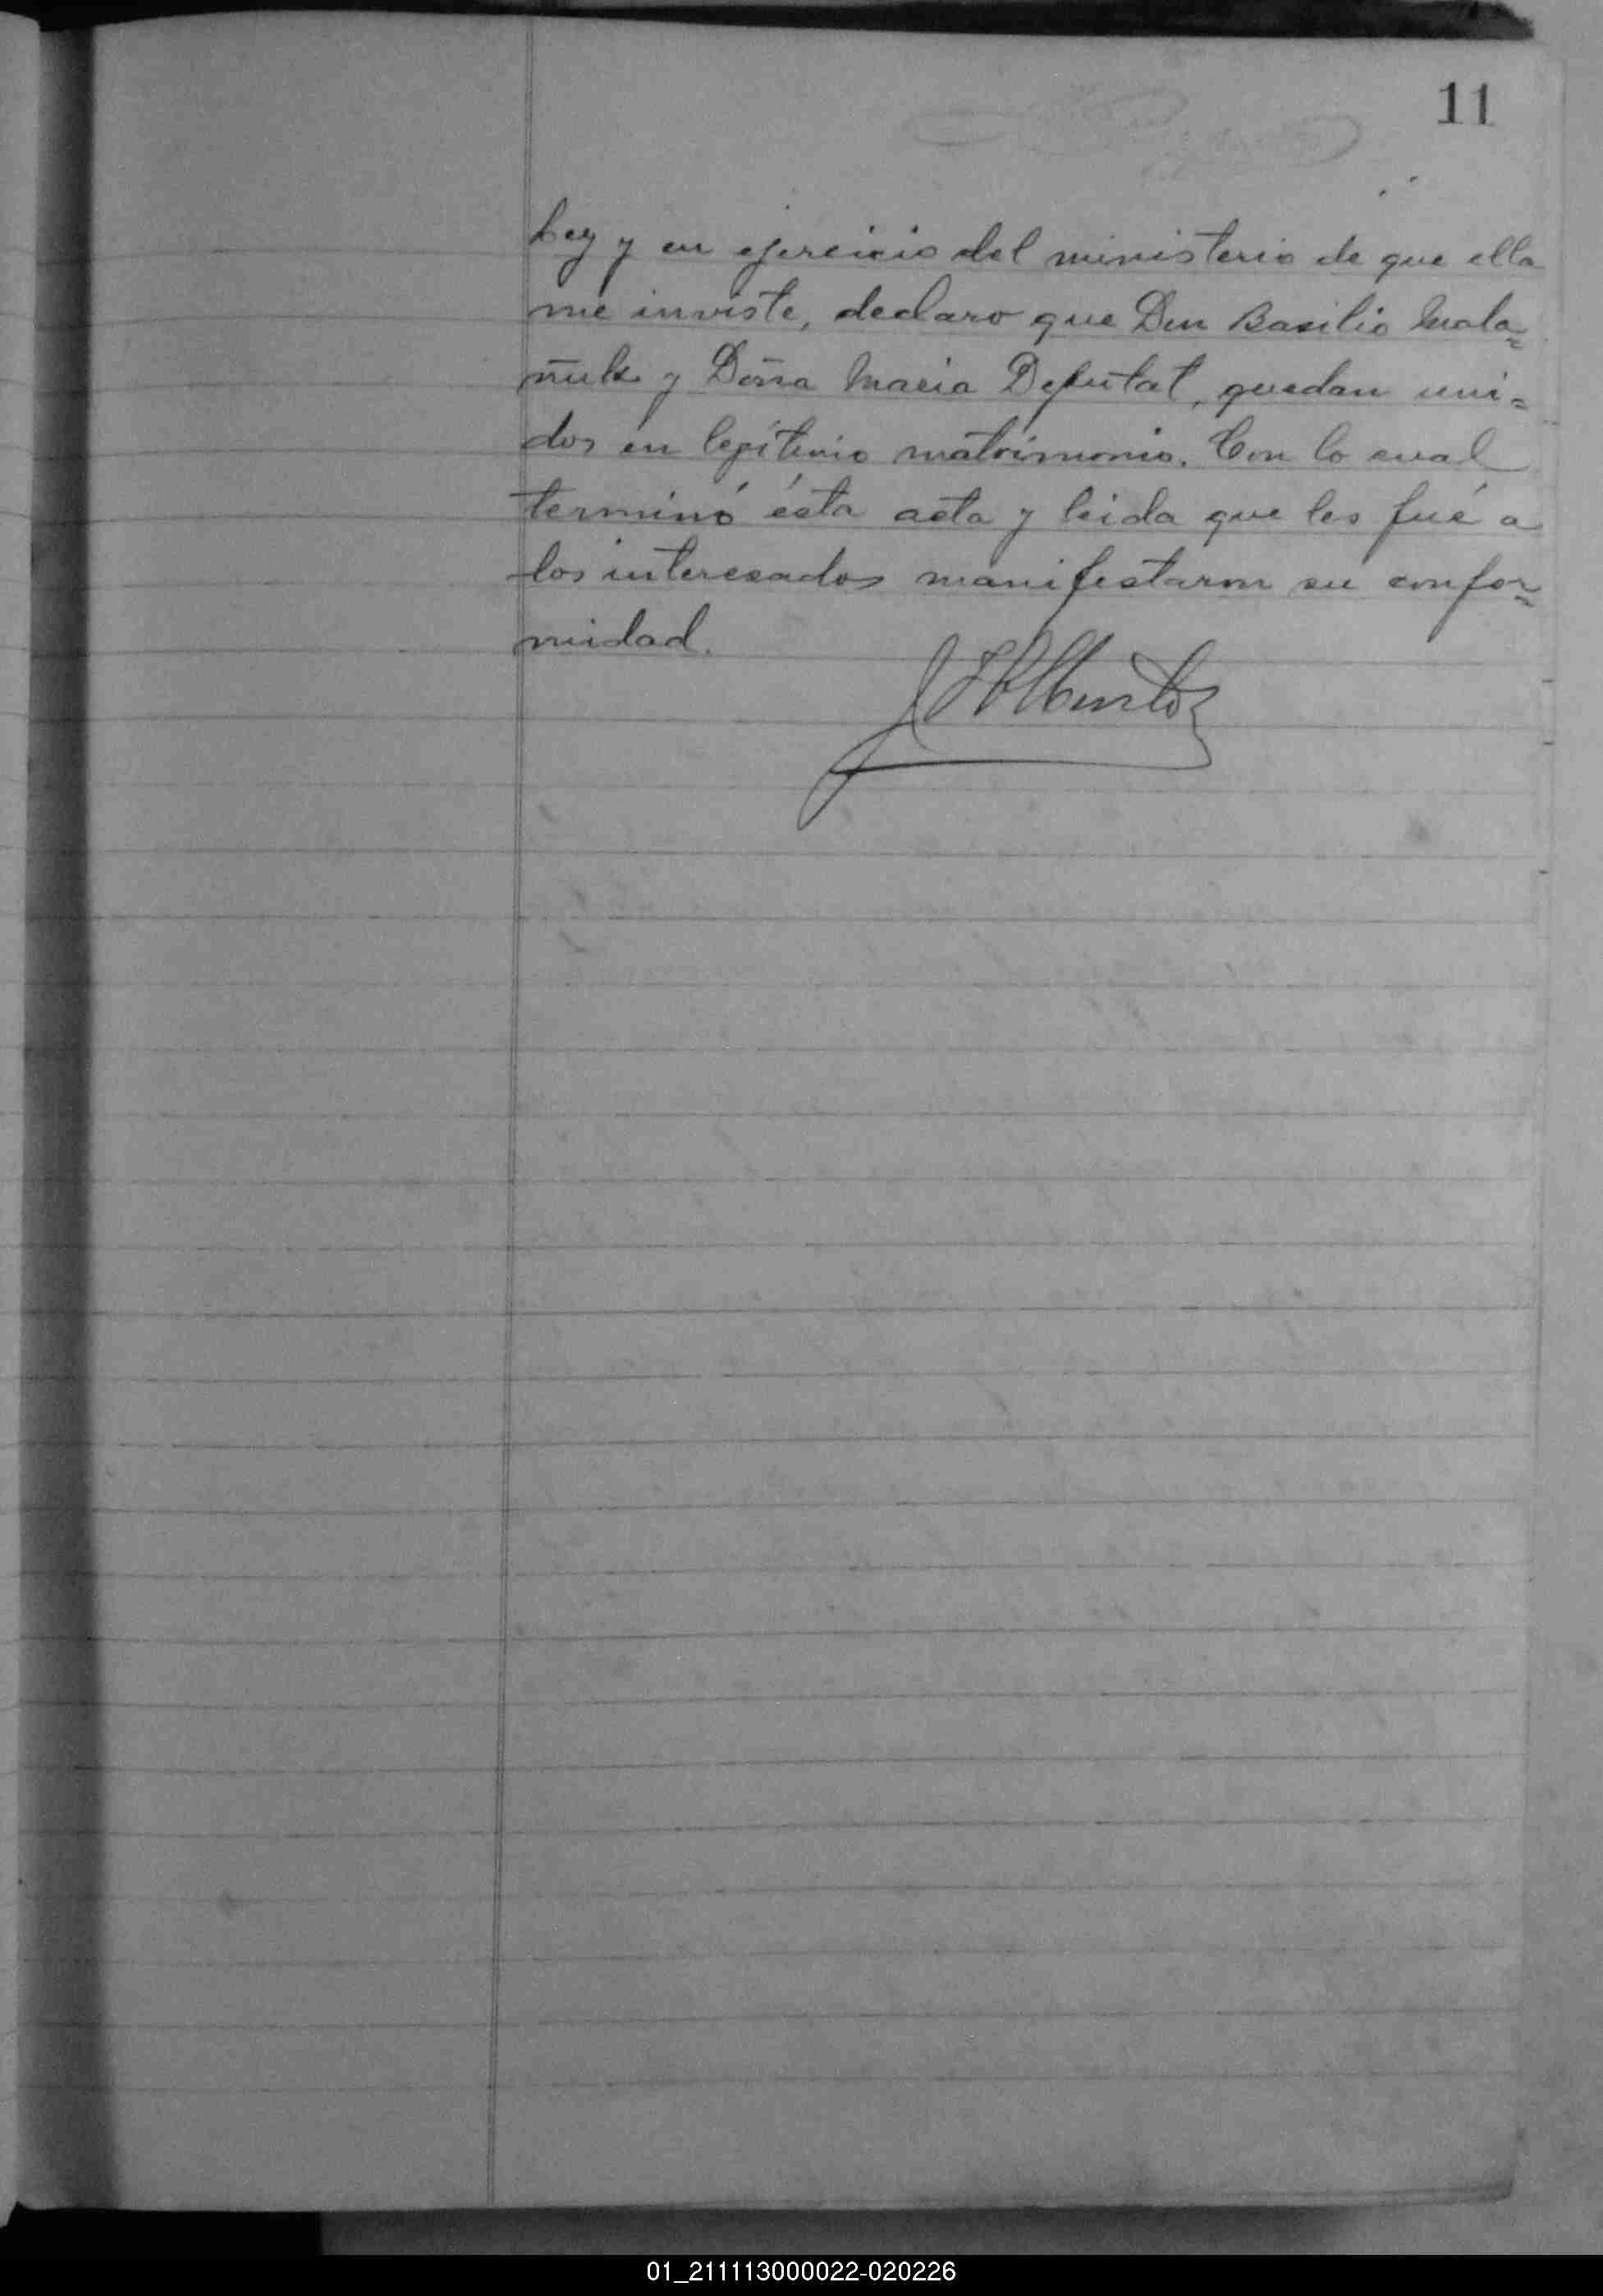 11
Ley y en ejercicio del ministerio de que ella
me inviste, declaro que Don Basilio Mala=
ñuk y Doña Maria Deputat, quedan uni=
dos en legítimo matrimonio. Con lo cual
terminó ésta acta y leida que les fué a
los interesados manifestaron su confor=
midad.
01_211113000022-020226